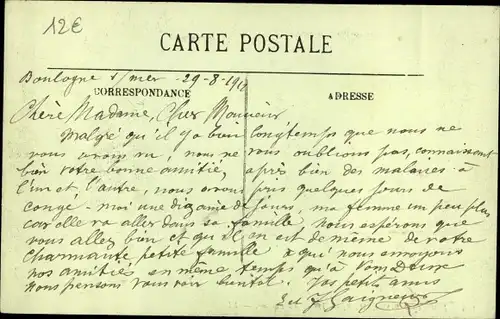 12€
CARTE POSTALE
Boulogne s/mer 29-8-19
CORRESPONDANCE
ADRESSE
Chère Madame, Cher Monsieur
Malgré qu'il y a bien longtemps que nous ne
vous avons vu, nous ne vous oublions pas, connaissant
bien votre bonne amitié, après bien des malaises à
l'un et l'autre, nous avons pris quelques jours de
congé - moi une dizaine de jours, ma femme un peu plus
car elle va aller dans sa famille. Nous espérons que
vous allez bien et qu'il en est de même de votre
charmante petite famille à qui nous envoyons
nos amitiés en même temps qu'à
nous pensons vous voir bientôt. Vos petits amis